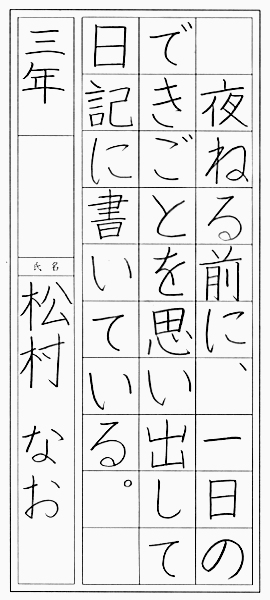 夜ねる前に、一日の
できごとを思い出して
日記に書いている。
三年
氏名
松村 なお